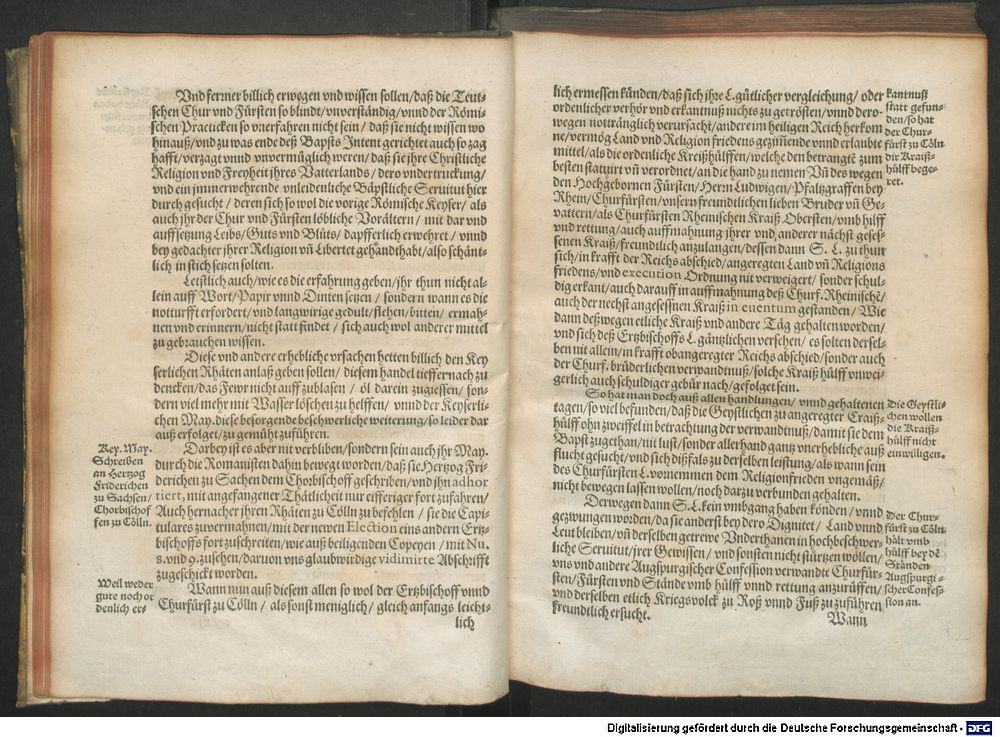 Vnd ferner billich erwegen vnd wissen sollen/daß die Teut-
schen Chur vnd Fürsten so blindt/vnverständig/vnnd der Römi-
schen Practicken so vnerfahren nicht sein/ daß sie nicht wissen wo
hinauß/vnd zu was ende deß Bapsts Intent gerichtet auch so zag
hafft/verzagt vnnd vnvermüglich weren/ daß sie jhre Christliche
Religion vnd Freyheit jhres Vatterlands/ dero vndertruckung/
vnd ein jmmerwehrende vnleidenliche Bäpstliche Seruitut hier
durch gesucht/ deren sich so wol die vorige Römische Keyser/ als
auch jhr der Chur vnd Fürsten löbliche Vorältern/ mit dar vnd
auffsetzung Leibs/Guts vnd Blůts/ dapfferlich erwehret/ vnnd
bey gedachter jhrer Religion vñ Libertet gehandthabt/also schänt-
lich in stich setzen solten.
Letstlich auch/wie es die erfahrung geben/jhr thun nicht al-
lein auff Wort/Papir vnnd Dinten setzen/ sondern wann es die
notturfft erfordert/vnd langwirige gedult/flehen/bitten/ ermah-
nen vnd erinnern/nicht statt findet/ sich auch wol anderer mittel
zu gebrauchen wissen.
Diese vnd andere erhebliche vrsachen hetten billich den Key
serlichen Rhäten anlaß geben sollen/ diesem handel tieffer nach zu
dencken/das Fewr nicht auff zublasen/ öl darein zugiessen/ son-
dern viel mehr mit Wasser löschen zu helffen/ vnnd der Keyserli-
chen May. diese besorgende beschwerliche weiterung/so leider dar
auß erfolget/zu gemüht zuführen.
Key. May.
Schreiben
an Hertzog
Friderichen
zu Sachsen/
Chorbischof
fen zu Cölln.
Darbey ist es aber nit verbliben/sondern sein auch jhr May.
durch die Romanisten dahin bewegt worden/daß sie Hertzog Fri-
derichen zu Sachen dem Chorbischoff geschriben/vnd jhn adhor
tiert, mit angefangener Thätlicheit nur eifferiger fort zufahren/
Auch hernacher jhren Rhäten zu Cölln zu befehlen/ sie die Capi-
tulares zuvermahnen/mit der newen Election eins andern Ertz-
bischoffs fort zuschreiten/wie auß beiligenden Copeyen/ mit Nu.
8. vnd 9. zusehen/daruon vns glaubwirdige vidimirte Abschrifft
zugeschickt worden.
Weil weder
gute noch or
denlich er-
Wann nun auß diesem allen so wol der Ertzbischoff vnnd
Churfürst zu Cölln/ als sonst meniglich/ gleich anfangs leicht-
lich
lich ermessen känden/daß sich jhre L. gütlicher vergleichung/ oder
ordenlicher verhör vnd erkantnuß nichts zu getrösten/vnnd dero-
wegen nottränglich verursacht/andere im heiligen Reich herkom
ne/vermög Land vnd Religion friedens gezimende vnnd erlaubte
mittel/als die ordenliche Kreißhülffen/welche den betrangtē zum
besten statuirt vñ verordnet/an die hand zu nemen Vñ des wegen
den Hochgebornen Fürsten/Herrn Ludwigen/Pfaltzgraffen bey
Rhein/Churfürsten/vnsern freundtlichen lieben Bruder vñ Ge-
vattern/als Churfürsten Rheinischen Kraiß Obersten/vmb hilff
vnd rettung/auch auffmahnung jhrer vnd anderer nächst geses-
senen Kraiß/freundtlich anzulangen/dessen dann S. L. zu thun
sich/in krafft der Reichs abschied/angeregten Land vñ Religions
friedens/vnd execution Ordnung nit verweigert/ sonder schul-
dig erkant/auch darauff in auffmahnung deß Churf. Rheinischē/
auch der nechst angesessnen Kraiß in euentum gestanden/ Wie
dann deßwegen etliche Kraiß vnd andere Täg gehalten worden/
vnd sich deß Ertzbischoffs L. gäntzlichen versehen/ es solten dersel-
ben nit allein/in krafft obangeregter Reichs abschied/sonder auch
der Churf. brüderlichen verwandtnuß/solche Kraiß hülff vnwei-
gerlich auch schuldiger gebür nach/gefolget sein.
kantnuß
statt gefun-
den/so hat
der Chur-
fürst zu Cöln
die Kraiß-
hülff bege-
ret.
So hat man doch auß allen handlungen/ vnnd gehaltenen
tagen/so viel befunden/daß die Geystlichen zu angeregter Craiß-
hülff ohn zweiffel in betrachtung der verwandtnuß/damit sie dem
Bapst zugethan/nit lust/sonder allerhand gantz vnerhebliche auß
flucht gesucht/vnd sich dißfals zu derselben leistung/als wann sein
des Churfürsten L. vornemmen dem Religionfrieden vngemäß/
nicht bewegen lassen wollen/noch darzu verbunden gehalten.
Die Geystli-
chen wöllen
die Kraiß-
hülff nicht
einwilligen.
Derwegen dann S. L. kein vmbgang haben könden/ vnnd
gezwungen worden/da sie anderst bey dero Dignitet/ Land vnnd
Leut bleiben/vñ derselben getrewe Vnderthanen in hochbeschwer-
liche Seruitut/jrer Gewissen/ vnd sonsten nicht stürtzen wöllen/
vns vnd andere Augspurgischer Confession verwandte Churfür-
sten/Fürsten vnd Stände vmb hülff vnnd rettung anzurüffen/
vnd derselben etlich Kriegsvolck zu Roß vnnd Fuß zu zuführen
freundtlich ersucht.
Der Chur-
fürst zu Cöln
hält vmb
hülff bey dē
Ständen
Augspurgi-
scher Confes-
sion an.
Wann
Digitalisierung gefördert durch die Deutsche Forschungsgemeinschaft - DFG